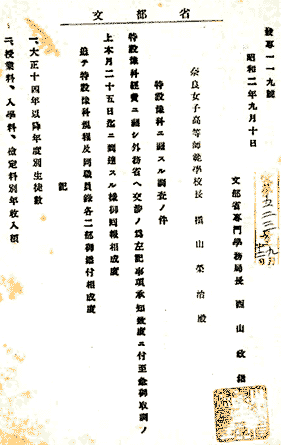 省部文
發專一一九號
昭和二年九月十日
文部省專門學務局長 西山政猪
奈良女子高等師範學校長 槇山榮治殿
特設豫科ニ關スル調査ノ件
特設豫科經費ニ關シ外務省ヘ交渉ノ爲左記事項承知致度ニ付至急御取調ノ
上本月二十五日迄ニ到達スル樣御回報相成度
追テ特設豫科規程及同職員錄各二部御送付相成度
記
一、大正十四年以降年度別生徒數
二、授業料、入學料、檢定料別年收入額